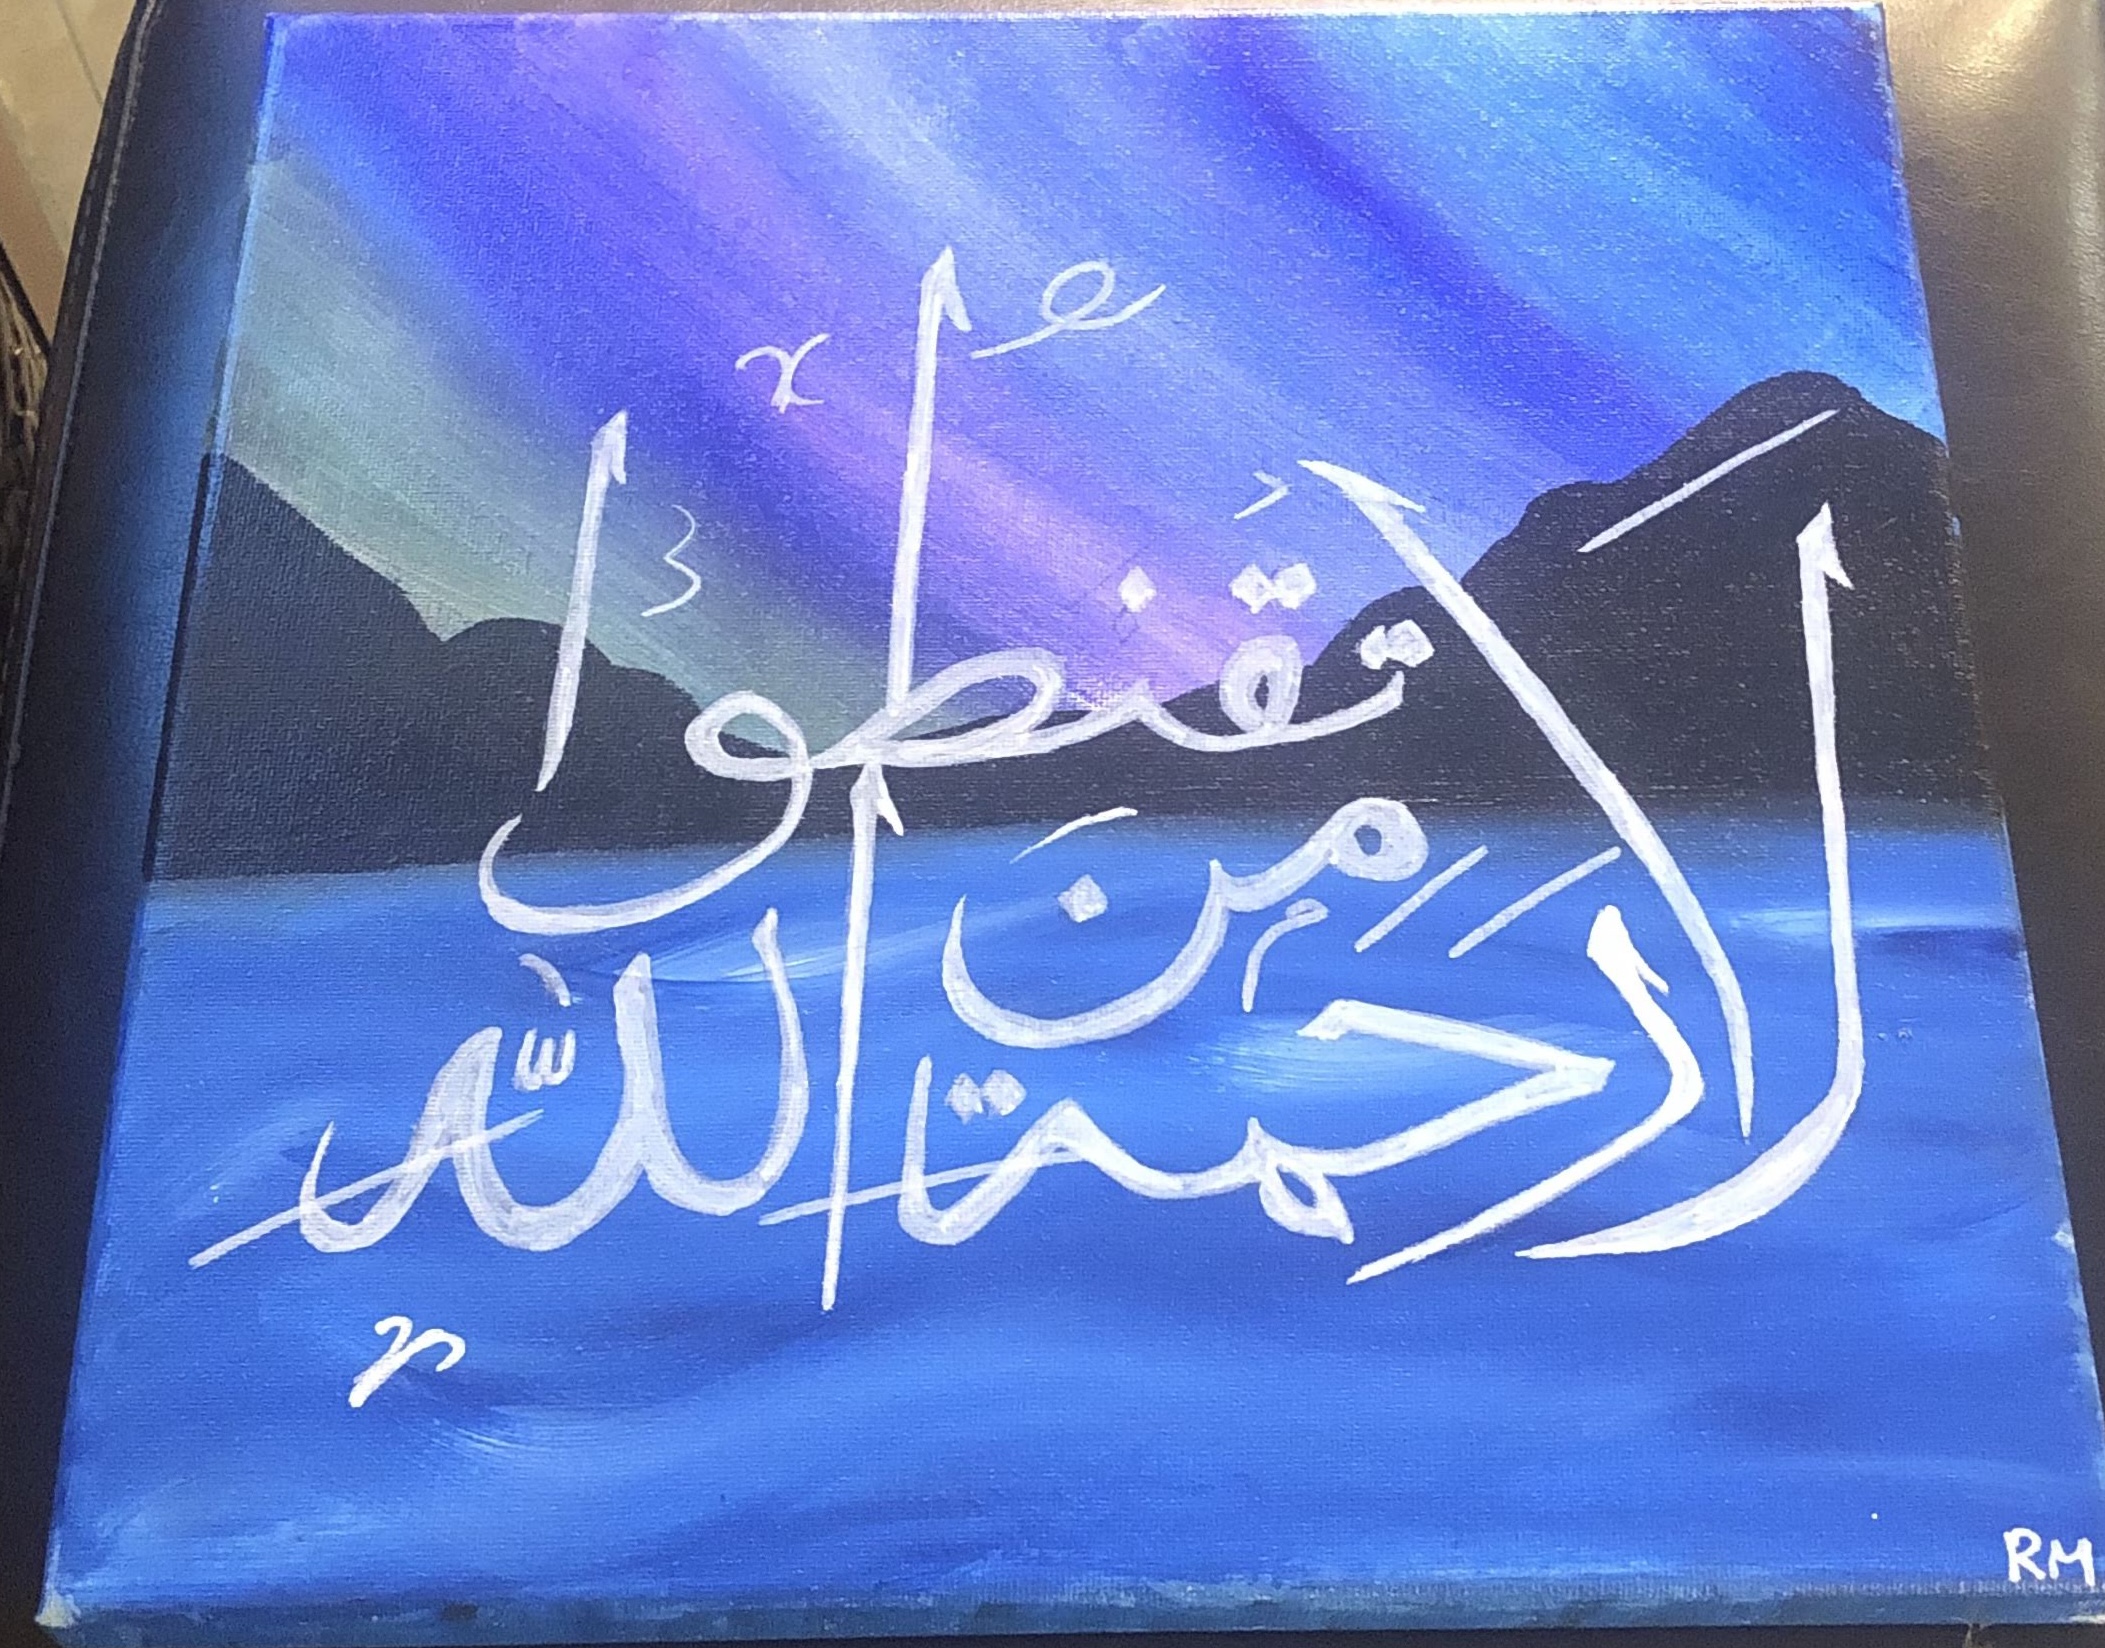 لا تقنطوا
من
رحمة الله
RM